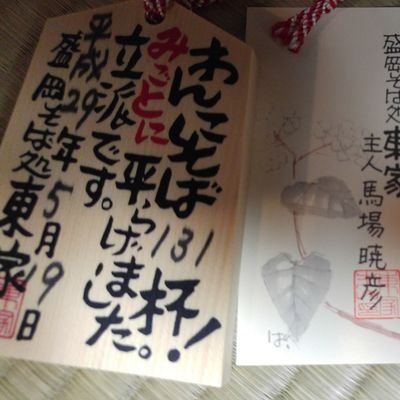 わんこそば131杯！
みごとに平らげました。
立派です。
平成29年5月19日
盛岡そば処東家
盛岡そば処東家
主人馬場暁彦